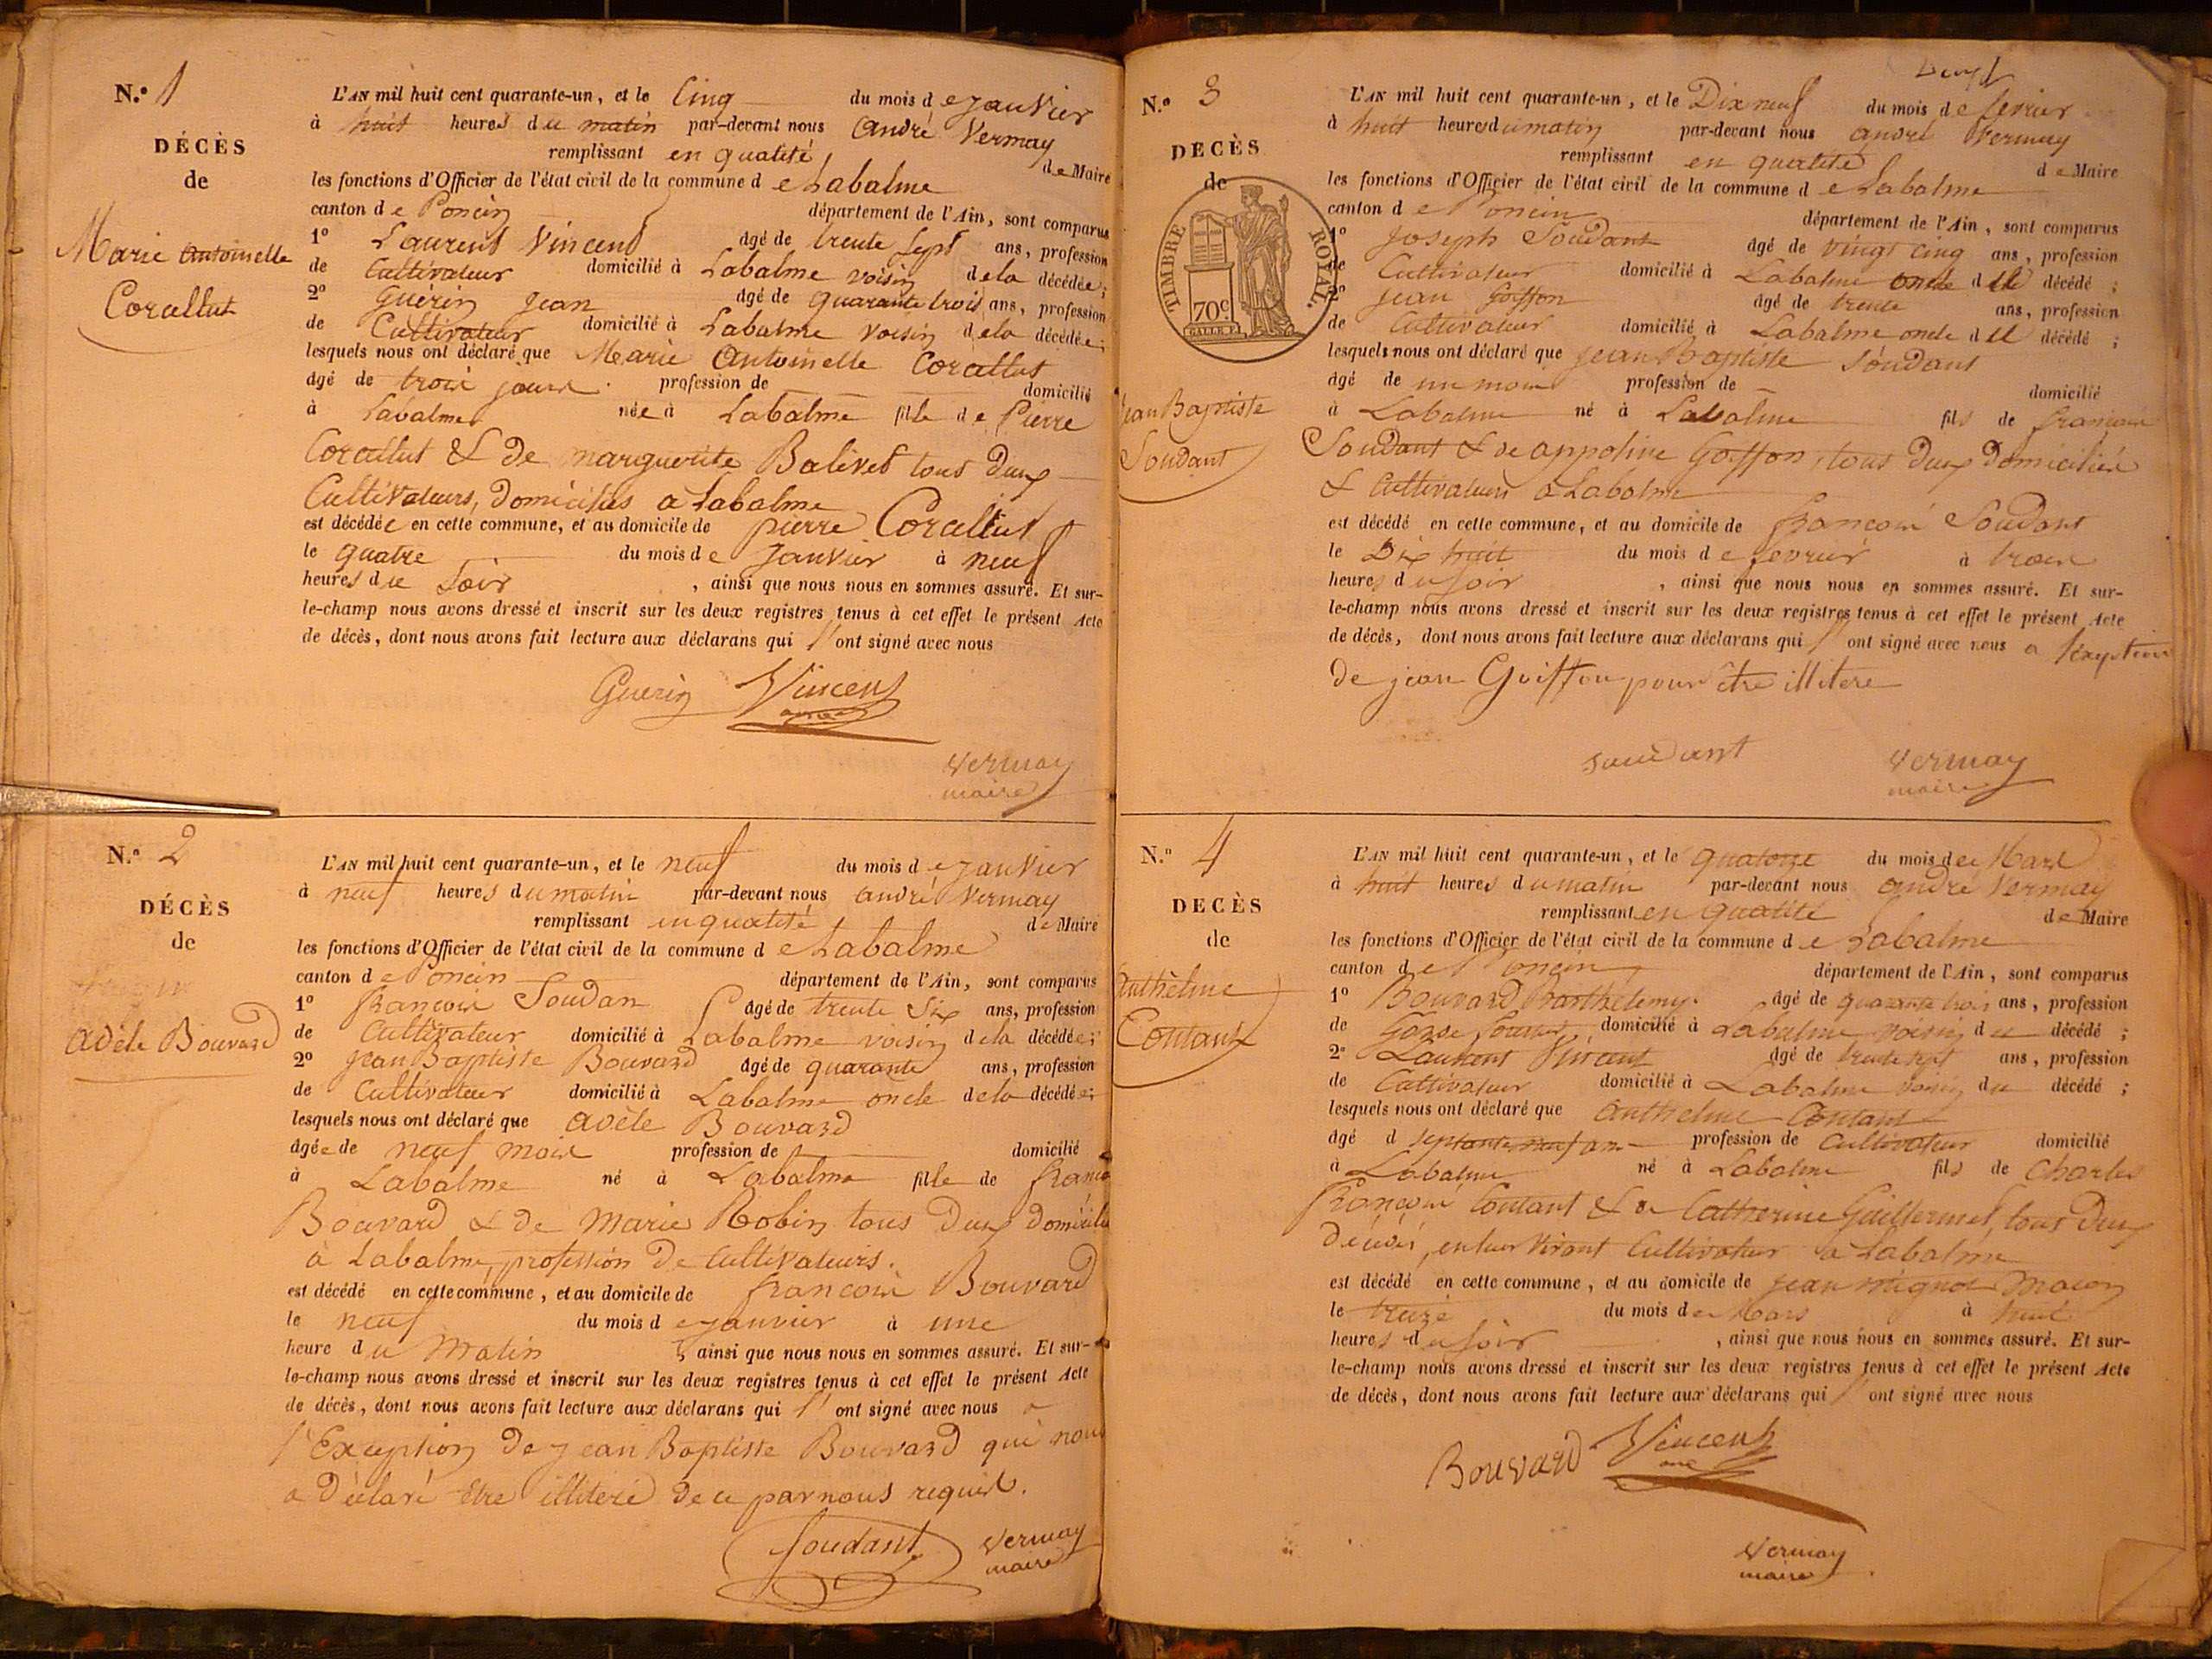 N.º 1
DÉCÈS
de
Marie Antoinette
Corallut
L'AN mil huit cent quarante-un, et le Cinq du mois de janvier
à huit heures du matin par-devant nous André Vermay
remplissant en qualité de Maire
les fonctions d'Officier de l'état civil de la commune de Labalme
canton de Poncin département de l'Ain, sont comparus
1º Laurent Vincent âgé de trente sept ans, profession
de Cultivateur domicilié à Labalme voisin de la décédée;
2º Guérin Jean âgé de quarante trois ans, profession
de Cultivateur domicilié à Labalme voisin de la décédée;
lesquels nous ont déclaré que Marie Antoinette Corallut
âgé de trois jours profession de domicilié
à Labalme née à Labalme fille de Pierre
Corallut & de marguerite Balivet tous deux
Cultivateurs, domiciliés a Labalme
est décédée en cette commune, et au domicile de pierre Corallut
le quatre du mois de Janvier à neuf
heures du Soir, ainsi que nous nous en sommes assuré. Et sur-
le-champ nous avons dressé et inscrit sur les deux registres tenus à cet effet le présent Acte
de décès, dont nous avons fait lecture aux déclarans qui l'ont signé avec nous
Guerin Vincent
Vermay
maire
N.º 2
DÉCÈS
de
Adèle Bouvard
L'AN mil huit cent quarante-un, et le neuf du mois de janvier
à neuf heures du matin par-devant nous André Vermay
remplissant en qualité de Maire
les fonctions d'Officier de l'état civil de la commune de Labalme
canton de Poncin département de l'Ain, sont comparus
1º François Soudan âgé de trente Six ans, profession
de Cultivateur domicilié à Labalme voisin de la décédée;
2º Jean Baptiste Bouvard âgé de quarante ans, profession
de Cultivateur domicilié à Labalme oncle de la décédée;
lesquels nous ont déclaré que Adèle Bouvard
âgée de neuf mois profession de domicilié
à Labalme né à Labalme fille de
Bouvard & de Marie Robin tous deux
à Labalme, profession de Cultivateurs.
est décédé en cette commune, et au domicile de françois Bouvard
le neuf du mois de janvier à une
heure du Matin, ainsi que nous nous en sommes assuré. Et sur-
le-champ nous avons dressé et inscrit sur les deux registres tenus à cet effet le présent Acte
de décès, dont nous avons fait lecture aux déclarans qui l'ont signé avec nous a
l'Exception de jean Baptiste Bouvard qui nous
a déclaré être illiteré de ce par nous requis.
Soudant Vermay
maire
N.º 3
DÉCÈS
de
TIMBRE ROYAL.
70c
Jean Baptiste
Soudant
L'AN mil huit cent quarante-un, et le Dix neuf du mois de fevrier
à huit heures du matin par-devant nous andré Vermay
remplissant en qualité de Maire
les fonctions d'Officier de l'état civil de la commune de Labalme
canton de Poncin département de l'Ain, sont comparus
1º Joseph Soudant âgé de vingt cinq ans, profession
de Cultivateur domicilié à Labalme oncle du décédé;
2º Jean Goiffon âgé de trente ans, profession
de Cultivateur domicilié à Labalme oncle du décédé;
lesquels nous ont déclaré que Jean Baptiste Soudant
âgé de un mois profession de domicilié
à Labalme né à Labalme fils de françois
Soudant & de appoline Goiffon, tous deux domiciliés
& Cultivateurs a Labalme
est décédé en cette commune, et au domicile de françois Soudant
le Dix huit du mois de fevrier à trois
heures du soir, ainsi que nous nous en sommes assuré. Et sur-
le-champ nous avons dressé et inscrit sur les deux registres tenus à cet effet le présent Acte
de décès, dont nous avons fait lecture aux déclarans qui l'ont signé avec nous a
de jean Goiffon pour être illitere
soudant Vermay
maire
N.º 4
DÉCÈS
de
Anthelme
Contant
L'AN mil huit cent quarante-un, et le quatorze du mois de Mars
à huit heures du matin par-devant nous André Vermay
remplissant en qualité de Maire
les fonctions d'Officier de l'état civil de la commune de Labalme
canton de Poncin département de l'Ain, sont comparus
1º Bouvard Barthélemy. âgé de quarante trois ans, profession
de Garde domicilié à Labalme voisin du décédé;
2º Laurent Vincent âgé de trente sept ans, profession
de Cultivateur domicilié à Labalme voisin du décédé;
lesquels nous ont déclaré que Anthelme Contant
âgé d septante neuf ans profession de Cultivateur domicilié
à Labalme né à Labalme fils de Charles
François Contant & de Catherine Guillermet, tous deux
décédés, en leur vivant Cultivateur a Labalme
est décédé en cette commune, et au domicile de jean mignot maçon
le treize du mois de Mars à huit
heures du soir, ainsi que nous nous en sommes assuré. Et sur-
le-champ nous avons dressé et inscrit sur les deux registres tenus à cet effet le présent Acte
de décès, dont nous avons fait lecture aux déclarans qui l'ont signé avec nous
Bouvard Vincent
Vermay
maire